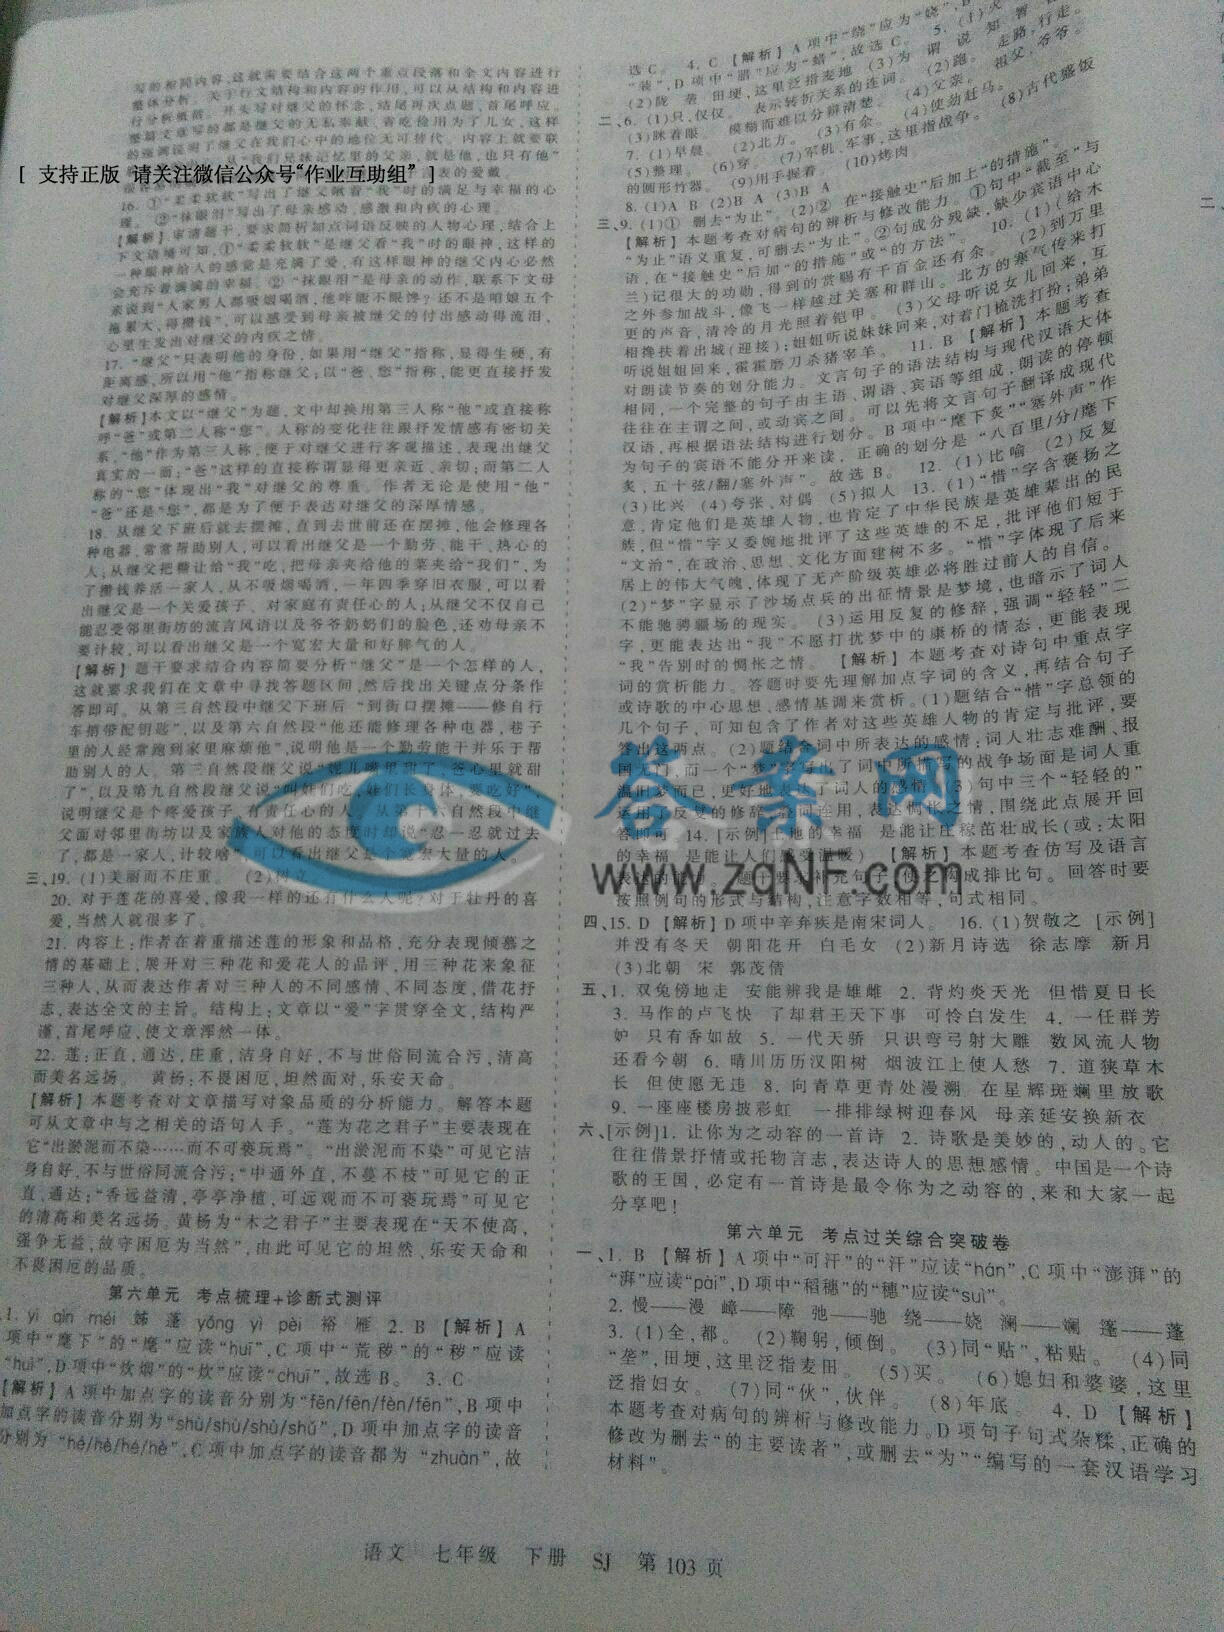 写的相同内容,这就需要结合这两个重点段落和全文内容进行
整体分析。关于行文结构和内容的作用,可以从结构和内容进
行分析概括。开头写对继父的怀念,结尾再次点题,首尾呼应。
整篇文章写的都是继父的无私奉献、省吃俭用为了儿女,这样
的强调说明了继父在我们心中的地位无可替代。内容上就要联
[ 支持正版 请关注微信公众号“作业互助组” ]
16. ①“柔柔软软”写出了继父瞅着“我”时的满足与幸福的心
理。 ②“抹眼泪”写出了母亲感动、感激和内疚的心理。
[解析]审清题干,要求简析加点词语反映的人物心理,结合上
下文语境可知,①“柔柔软软”是继父看“我”时的眼神,这样的
一种眼神给人的感觉是充满了爱,有这样眼神的继父内心必然
会充斥着满满的幸福。 ②“抹眼泪”是母亲的动作,联系下文母
亲说到“人家男人都吸烟喝酒,他咋能不眼馋?还不是咱娘五个
拖累大,得攒钱”,可以感受到母亲被继父的付出感动得流泪,
心里生发出对继父的内疚之情。
17. “继父”只表明他的身份,如果用“继父”指称,显得生硬,有
距离感,所以用“他”指称继父;以“爸、您”指称,能更直接抒发
对继父深厚的感情。
[解析]本文以“继父”为题,文中却换用第三人称“他”或直接称
呼“爸”或第二人称“您”。人称的变化往往跟抒发情感有密切关
系,“他”作为第三人称,便于对继父进行客观描述,表现出继父
真实的一面;“爸”这样的直接称谓显得更亲近、亲切;而第二人
称的“您”体现出“我”对继父的尊重。作者无论是使用“他”
“爸”还是“您”,都是为了便于表达对继父的深厚情感。
18. 从继父下班后就去摆摊,直到去世前还在摆摊,他会修理各
种电器,常常帮助别人,可以看出继父是一个勤劳、能干、热心的
人;从继父把糖让给“我”吃,把母亲夹给他的菜夹给“我们”,为
了攒钱养活一家人,从不吸烟喝酒,一年四季穿旧衣服,可以看
出继父是一个关爱孩子、对家庭有责任心的人;从继父不仅自己
能忍受邻里街坊的流言风语以及爷爷奶奶们的脸色,还劝母亲不
要计较,可以看出继父是一个宽宏大量和好脾气的人。
[解析]题干要求结合内容简要分析“继父”是一个怎样的人,
这就要求我们在文章中寻找答题区间,然后找出关键点分条作
答即可。从第三自然段中继父下班后“到街口摆摊——修自行
车捎带配钥匙”,以及第六自然段“他还能修理各种电器,巷子
里的人经常跑到家里麻烦他”,说明他是一个勤劳能干并乐于帮
助别人的人。第三自然段继父说“妮儿嘴里甜了,爸心里就甜
了”,以及第九自然段继父说“叫娃们吃,娃们长身体,要吃好”,
说明继父是个疼爱孩子、有责任心的人。从第十六自然段中继
父面对邻里街坊以及家族人对他的态度时却说“忍一忍就过去
了,都是一家人,计较啥”可以看出继父是个宽宏大量的人。
三、19. (1)美丽而不庄重。 (2)树立
20. 对于莲花的喜爱,像我一样的还有什么人呢?对于牡丹的喜
爱,当然人就很多了。
21. 内容上:作者在着重描述莲的形象和品格,充分表现倾慕之
情的基础上,展开对三种花和爱花人的品评,用三种花来象征
三种人,从而表达作者对三种人的不同感情、不同态度,借花抒
志,表达全文的主旨。结构上:文章以“爱”字贯穿全文,结构严
谨,首尾呼应,使文章浑然一体。
22. 莲:正直,通达,庄重,洁身自好,不与世俗同流合污,清高
而美名远扬。 黄杨:不畏困厄,坦然面对,乐安天命。
[解析]本题考查对文章描写对象品质的分析能力。解答本题
可从文章中与之相关的语句入手。“莲为花之君子”主要表现在
它“出淤泥而不染……而不可亵玩焉”。“出淤泥而不染”可见它洁
身自好,不与世俗同流合污;“中通外直,不蔓不枝”可见它的正
直,通达;“香远益清,亭亭净植,可远观而不可亵玩焉”可见它
的清高和美名远扬。黄杨为“木之君子”主要表现在“天不使高,
强争无益,故守困厄为当然”,由此可见它的坦然、乐安天命和
不畏困厄的品质。
第六单元 考点梳理+诊断式测评
1. yì qìn méi 姊 蓬 yǒng yì pèi 裕 雁 2. B [解析] A
项中“麾下”的“麾”应读“huī”,C项中“荒秽”的“秽”应读
“huì”,D项中“炊烟”的“炊”应读“chuī”,故选B。 3. C
[解析]A项中加点字的读音分别为“fēn/fēn/fèn/fēn”,B项中
加点字的读音分别为“shù/shù/shù/shǔ”,D项中加点字的读音
分别为“hé/hè/hé/hè”,C项中加点字的读音都为“zhuàn”,故
选C。 4. C [解析]A项中“绕”应为“娆”,B
“装”,D项中“腊”应为“蜡”,故选C。 5. (1)火
(2)陇 垄 田埂,这里泛指麦地 (3)为 谓 说 知 智
二、6. (1)只,仅仅。 表示转折关系的连词。 (2)跑。 走路,行走。
(3)眯着眼。 模糊而难以分辨清楚。 (4)父亲。 祖父,爷爷。
7. (1)早晨。 (2)北方。 (3)有余。 (4)使劲赶马。
(5)整理。 (6)穿。 (7)军机,军事,这里指战争。 (8)古代盛饭
的圆形竹器。 (9)用手握着。 (10)烤肉
8. (1)A B (2)B A (3)A B
三、9. (1)① 删去“为止”。 (2)② 在“接触史”后加上“的措施”。
[解析]本题考查对病句的辨析与修改能力。①句中“截至”与
“为止”语义重复,可删去“为止”。②句成分残缺,缺少宾语中心
语,在“接触史”后加“的措施”或“的方法”。 10. (1)(给木
兰)记很大的功勋,得到的赏赐有千百金还有余。 (2)到万里
之外参加战斗,像飞一样越过关塞和群山。北方的寒气传来打
更的声音,清冷的月光照着铠甲。 (3)父母听说女儿回来,互
相搀扶着出城(迎接);姐姐听说妹妹回来,对着门梳洗打扮;弟弟
听说姐姐回来,霍霍磨刀杀猪宰羊。 11. B [解析]本题考查
对朗读节奏的划分能力。文言句子的语法结构与现代汉语大体
相同,一个完整的句子由主语、谓语、宾语等组成,朗读的停顿
往往在主谓之间,或动宾之间。可以先将文言句子翻译成现代
汉语,再根据语法结构进行划分。B项中“麾下炙”“塞外声”作
为句子的宾语不能分开来读,正确的划分是“八百里/分/麾下
炙,五十弦/翻/塞外声”。故选B。 12. (1)比喻 (2)反复
(3)比兴 (4)夸张、对偶 (5)拟人 13. (1)“惜”字含褒扬之
意,肯定他们是英雄人物,也肯定了中华民族是英雄辈出的民
族,但“惜”字又委婉地批评了这些英雄的不足,批评他们短于
“文治”,在政治、思想、文化方面建树不多。“惜”字体现了后来
居上的伟大气魄,体现了无产阶级英雄必将胜过前人的自信。
(2)“梦”字显示了沙场点兵的出征情景是梦境,也暗示了词人
不能驰骋疆场的现实。 (3)运用反复的修辞,强调“轻轻”二
字,更能表达出“我”不愿打扰梦中的康桥的情态,更能表现
“我”告别时的惆怅之情。 [解析]本题考查对诗句中重点字
词的赏析能力。答题时要先理解加点字词的含义,再结合句子
或诗歌的中心思想、感情基调来赏析。(1)题结合“惜”字总领的
几个句子,可知包含了作者对这些英雄人物的肯定与批评,要
答出这两点。(2)题结合词中所表达的感情:词人壮志难酬、报
国无门,而一个“梦”字写出了词中所描写的战争场面是词人重
温旧梦而已,更好地表达了词人的感情。(3)句中三个“轻轻的”
运用了反复的修辞,叠词连用,表达惆怅之情,围绕此点展开回
答即可。 14. [示例]土地的幸福 是能让庄稼茁壮成长(或:太阳
的幸福 是能让人们感受温暖) [解析]本题考查仿写及语言
表达的能力。题干要求补充句子,使之构成排比句。回答时要
按照例句的形式与结构,注意字数相等,句式相同。
四、15. D [解析]D项中辛弃疾是南宋词人。 16. (1)贺敬之 [示例]
并没有冬天 朝阳花开 白毛女 (2)新月诗选 徐志摩 新月
(3)北朝 宋 郭茂倩
五、1. 双兔傍地走 安能辨我是雄雌 2. 背灼炎天光 但惜夏日长
3. 马作的卢飞快 了却君王天下事 可怜白发生 4. 一任群芳
妒 只有香如故 5. 一代天骄 只识弯弓射大雕 数风流人物
还看今朝 6. 晴川历历汉阳树 烟波江上使人愁 7. 道狭草木
长 但使愿无违 8. 向青草更青处漫溯 在星辉斑斓里放歌
9. 一座座楼房披彩虹 一排排绿树迎春风 母亲延安换新衣
六、[示例]1. 让你为之动容的一首诗 2. 诗歌是美妙的,动人的。它
往往借景抒情或托物言志,表达诗人的思想感情。中国是一个诗
歌的王国,必定有一首诗是最令你为之动容的,来和大家一起
分享吧!
第六单元 考点过关综合突破卷
一、1. B [解析]A项中“可汗”的“汗”应读“hán”,C项中“澎湃”的
“湃”应读“pài”,D项中“稻穗”的“穗”应读“suì”。
2. 慢——漫 嶂——障 弛——驰 绕——娆 澜——斓 篷——蓬
3. (1)全,都。 (2)鞠躬,倾倒。 (3)同“贴”,粘贴。 (4)同
“垄”,田埂,这里泛指麦田。 (5)买。 (6)媳妇和婆婆,这里
泛指妇女。 (7)同“伙”,伙伴。 (8)年底。 4. D [解析]
本题考查对病句的辨析与修改能力。D项句子句式杂糅,正确的
修改为删去“的主要读者”,或删去“为”“编写的一套汉语学习
材料”。
答案网
www.zqNF.com
语文 七年级 下册 SJ 第103页